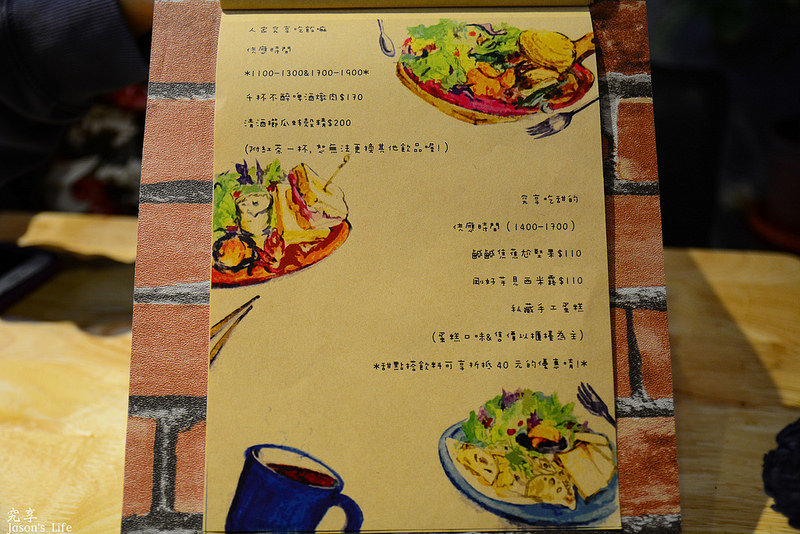 人家究享吃飯嘛
供應時間
*1100-1300&1700-1900*
千杯不醉啤酒燉肉$170
清酒櫛瓜蚌殼精$200
(附紅茶一杯,恕無法更換其他飲品喔!)
究享吃甜的
供應時間(1400-1700)
鹹鹹焦蕉尬堅果$110
剛好芋見西米露$110
私藏手工蛋糕
(蛋糕口味&售價以櫃檯為主)
*甜點搭飲料可享折抵 40 元的優惠唷!*
究享
Jason's Life